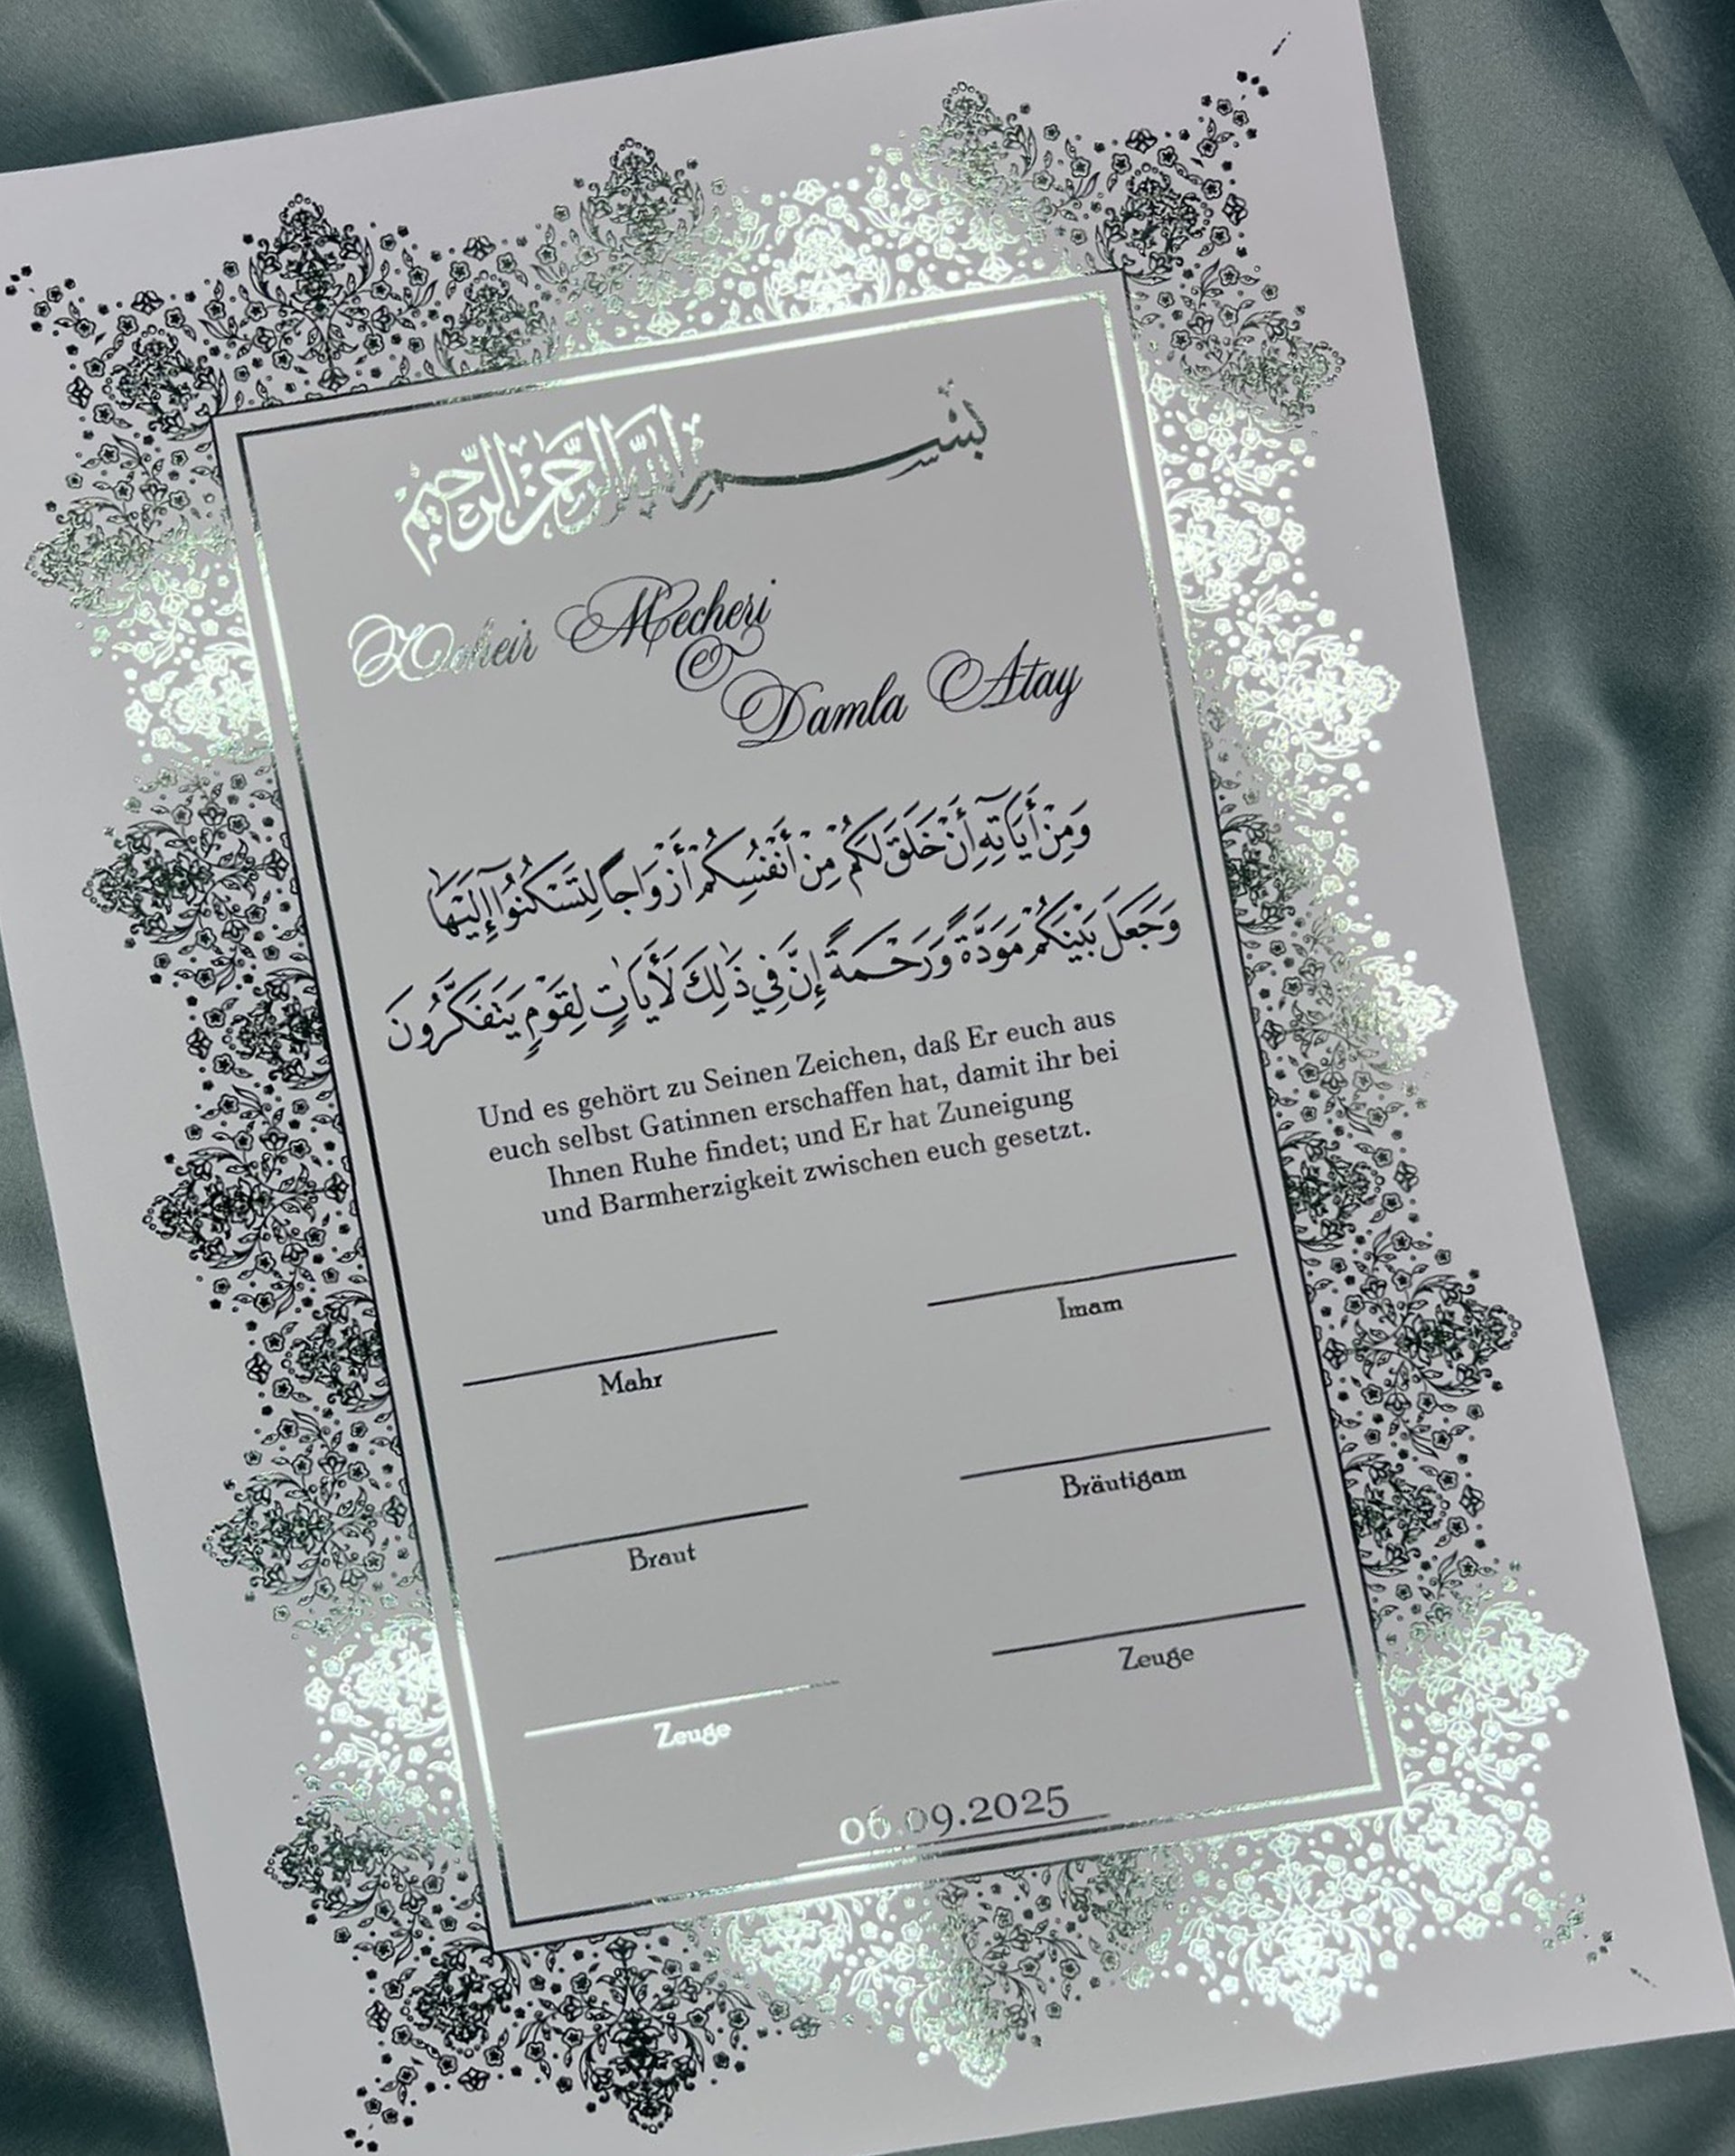 بسم الله الرحمن الرحيم
Zoheir Mecheri
&
Damla Atay
وَمِنْ أَيَاتِهِ أَنْ خَلَقَ لَكُمْ مِنْ أَنْفُسِكُمْ أَزْوَاجًا لِتَسْكُنُوا إِلَيْهَا
وَجَعَلَ بَيْنَكُمْ مَوَدَّةً وَرَحْمَةً إِنَّ فِي ذَٰلِكَ لَأَيَاتٍ لِقَوْمٍ يَتَفَكَّرُونَ
Und es gehört zu Seinen Zeichen, daß Er euch aus
euch selbst Gatinnen erschaffen hat, damit ihr bei
Ihnen Ruhe findet; und Er hat Zuneigung
und Barmherzigkeit zwischen euch gesetzt.
Imam
Mahr
Bräutigam
Braut
Zeuge
Zeuge
06.09.2025